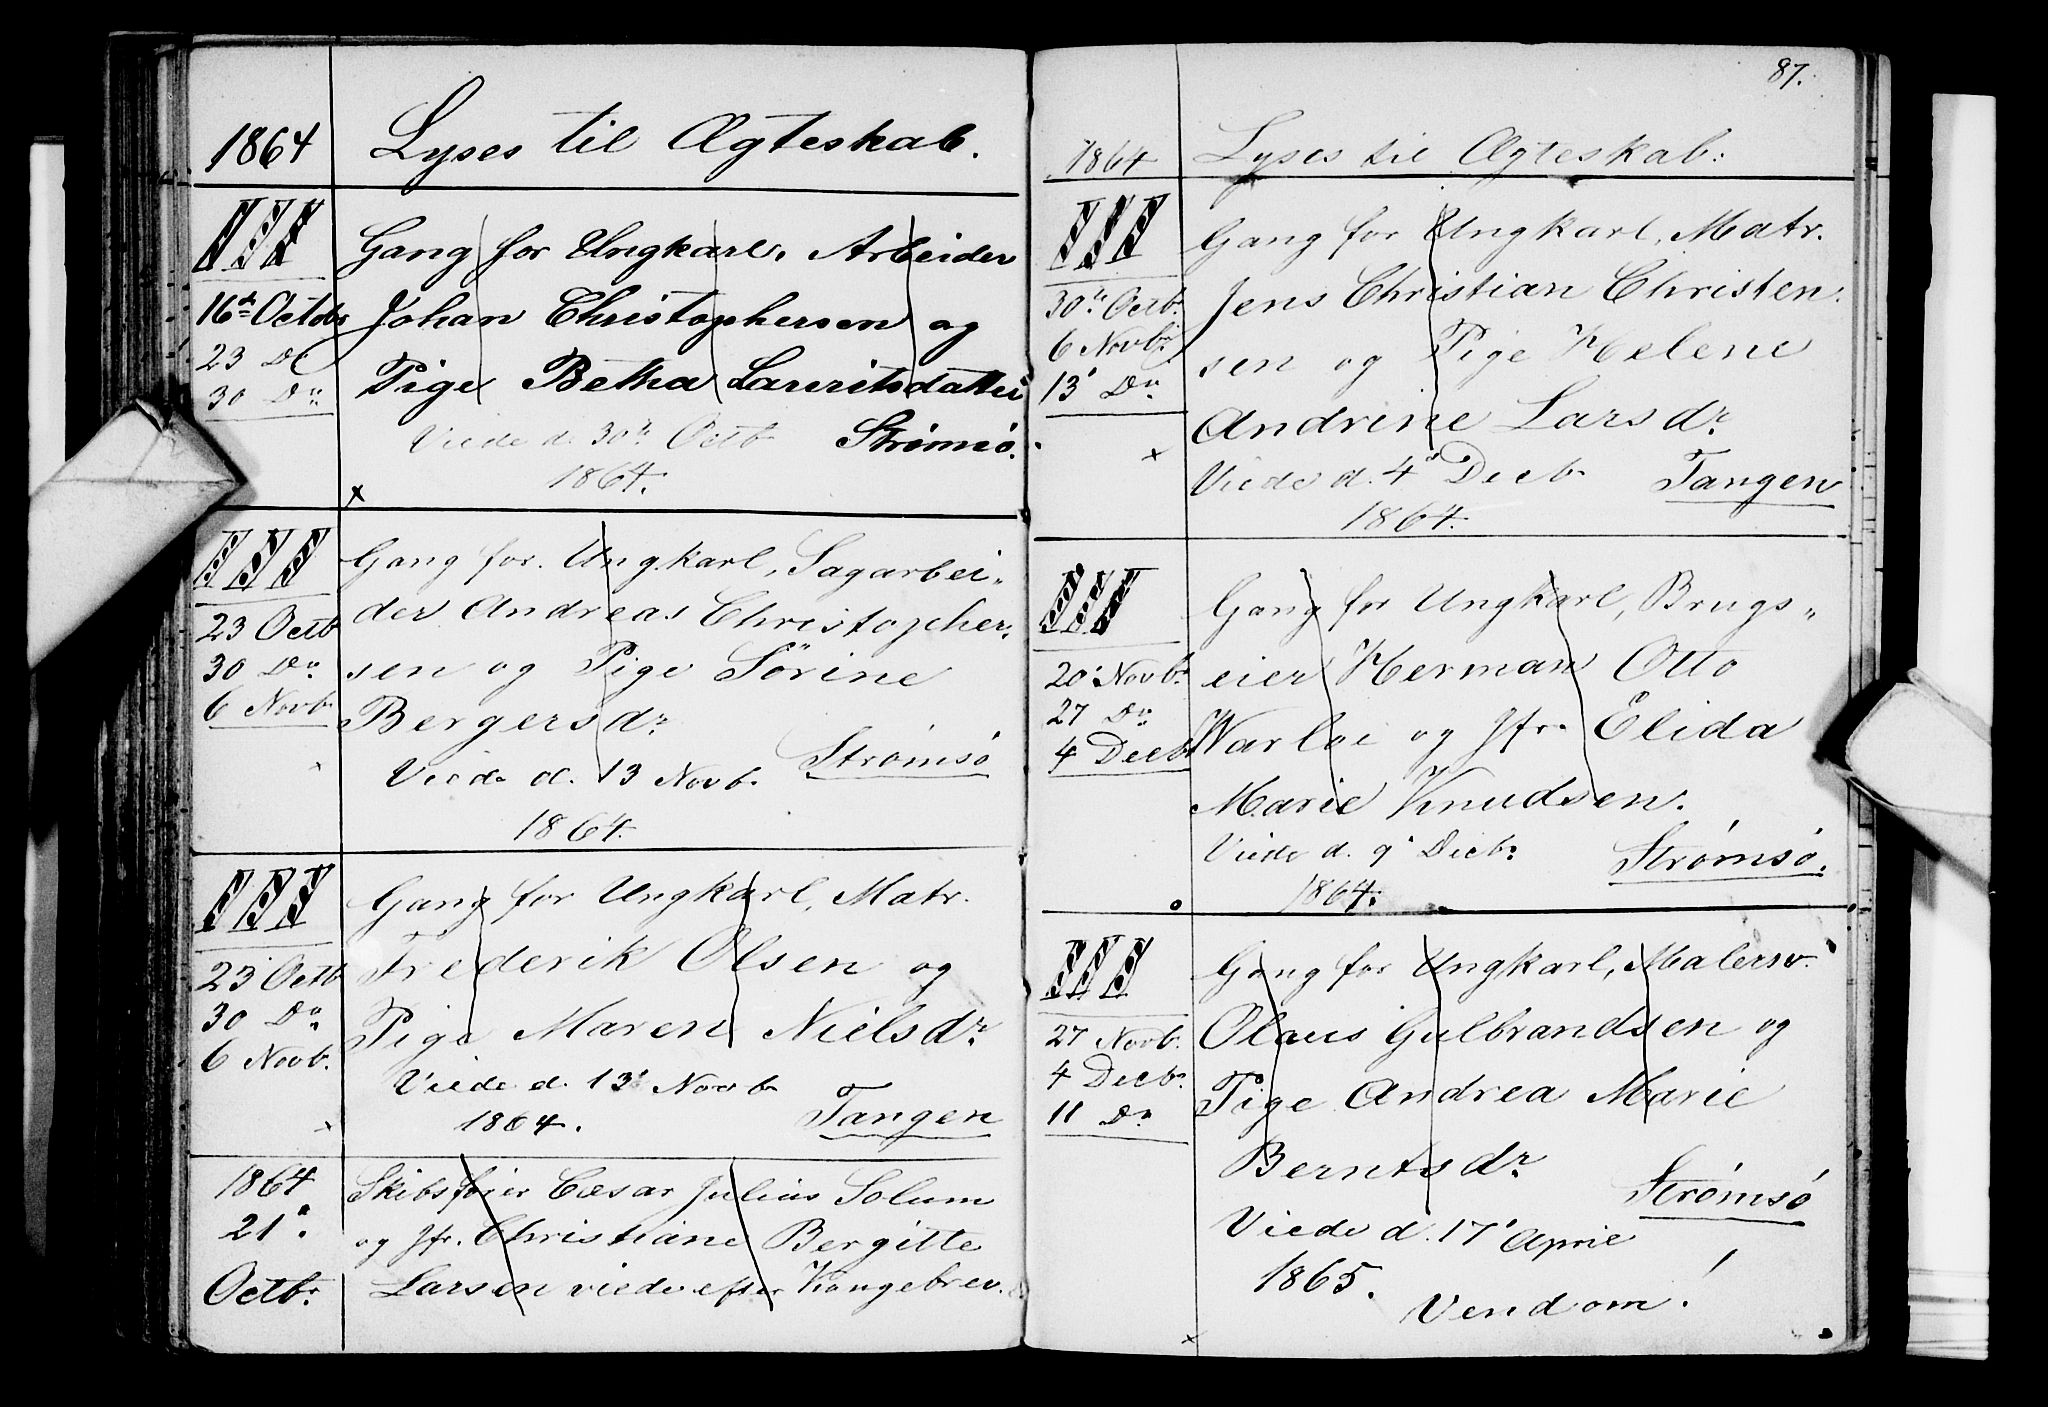 1864
Lyses til Ægteskab.
III
16de Octobr
23 Do
30 Do
Gang for Ungkarl, Arbeider
Johan Christophersen og
Pige Betha Lauritsdatter
Viede d. 30te Octb. Strømsö.
1864.
x
III
23 Octb
30 Do
6 Novbr
Gang for Ungkarl, Sagarbei„
der Andreas Christopher„
sen og Pige Sörine
Bergersdr
Viede d. 13 Novb. Strømsö
1864.
III
23 Octb
30 Do
6 Novb.
Gang for Ungkarl, Matr.
Frederik Olsen og
Pige Maren Nielsdr
Viede d. 13 Novb
1864. Tangen
x
1864
21.
Octbr.
Skibsfører Cæsar Julius Solum
og Jfr. Christiane Bergitte
Larsen viede efter Kongebrev.
87.
1864
Lyses til Ægteskab:
III
30te Octb.
6 Novbr
13 Do
x
Gang for Ungkarl, Matr.
Jens Christian Christen
sen og Pige Helene
Andrine Larsdr
Viede d. 4 Decb Tangen
1864.
III
20 Novbr
27 Do
4 Decb
Gang for Ungkarl, Brugs„
eier Herman Otto
Warloe og Jfr. Elida
Marie Knudsen.
Viede d. 9 Decbr Strømsö.
1864.
III
27 Novb.
4 Decbr.
11 Do
Gang for Ungkarl, Malersv.
Olaus Gulbrandsen og
Pige Andrea Marie
Berntsdr
Strømsö
Viede d. 17 April
1865.
Vend om!
x